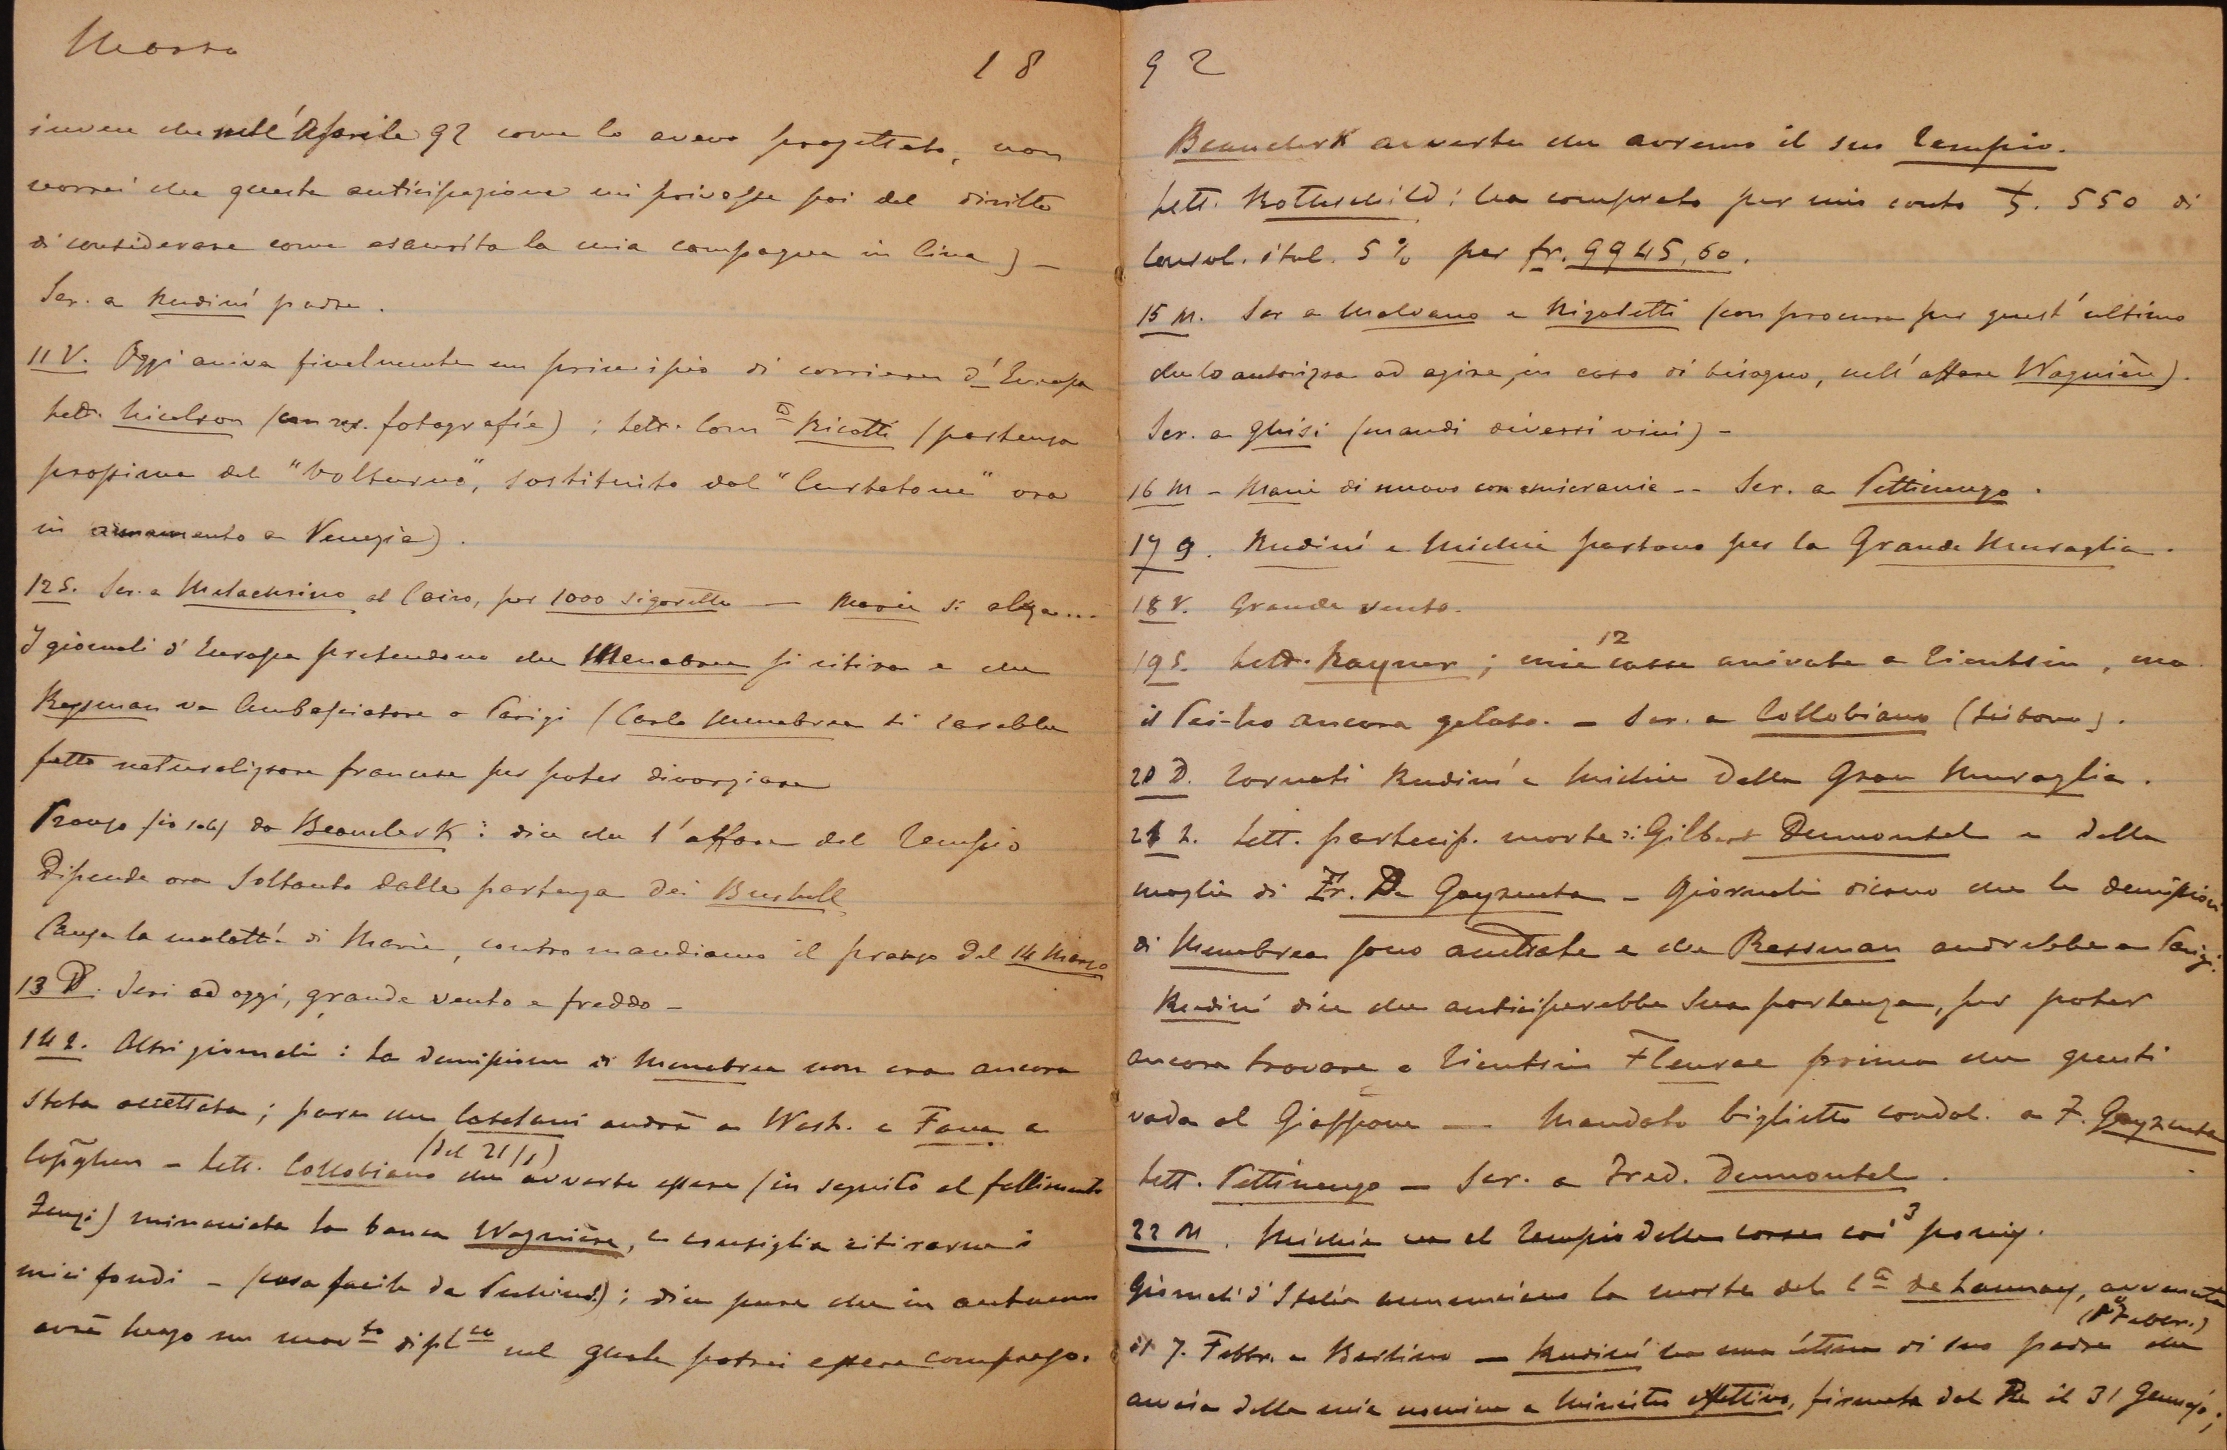 Marzo 18
invece che nell'Aprile 92 come lo avevo progettato, non
vorrei che questa anticipazione mi privasse poi del diritto
di considerare come esaurita la mia campagna in Cina) –
Scr. a Rudinì padre.
11 V. Oggi arriva finalmente un principio di corriere d'Europa
Lett. Nicolson (con fotografie) ; Lett. Com Ricotti (partenza
prossima del "Volturno", sostituito dal "Curtatone" ora
in armamento a Venezia).
12 S. Scr. a Melachrino al Cairo, per 1000 sigarette — Marie si alza...
I giornali d'Europa pretendono che Menabrea si ritira e che
Ressman va Ambasciatore a Parigi (Carlo Menabrea si sarebbe
fatto naturalizzare francese per poter divorziare
Pranzo (io solo) da Beauclerk : dice che l'affare del Tempio
Dipende ora soltanto dalla partenza dei Bushell
Causa la malattia di Marie, contro mandiamo il pranzo del 14 Marzo
13 D. Ieri ed oggi, grande vento e freddo –
14 L. Altri giornali : La demissione di Menabrea non era ancora
stata accettata ; pare che Catalani andrà a Wash. e Fava a
Copenghen – Lett. Collobiano (del 21/1) che avverte essere (in seguito al fallimento
Fenzi) minacciata la banca Wagnière, e consiglia ritirarne i
miei fondi – (cosa facile da Pechino!) ; dice pure che in autunno
avrà luogo un movto diplco nel quale potrei essere compreso.
92
Beauclerk avverte che avremo il suo Tempio.
Lett. Rothschild : ha comprato per mio conto 550 di
Consol. ital. 5% per fr. 9945,60.
15 M. Scr a Malvano e Rigoletti (con procura per quest'ultimo
che lo autorizza ad agire, in caso di bisogno, nell'affare Wagnière).
Scr. a Ghisi (mandi diversi vini) –
16 M – Marie di nuovo con emicrania -- Scr. a Pettinengo.
17 G. Rudinì e Michie partono per la Grande Muraglia.
18 V. Grande vento.
19 S. Lett. Rayner ; mie 12 casse arrivate a Tientsin, ma
il Pei-ho ancora gelato. – Scr. a Collobiano (Lisbona).
20 D. Tornati Rudinì e Michie dalla Gran Muraglia.
21 L. Lett. partecip. morte di Gilbert Dumontel e della
moglie di Fr. De Gayzueta – Giornali dicono che le demissioni
di Menabrea sono accettate e che Ressman andrebbe a Parigi.
Rudinì dice che anticiperebbe sua partenza, per poter
ancora trovare a Tientsin Fleurae prima che questi
vada al Giappone — Mandato biglietto condol. a F. Gayzueta
Lett. Pettinengo – Scr. a Fred. Dumontel.
22 M. Michie va al Tempio delle corse coi 3 poneys.
Giornali d'Italia annunciano la morte del Cte de Launay, avvenuta
il 7. Febbr. a Berlino — Rudinì ha una lettera di suo padre (1° Febbr.) che
avvisa della mia nomina a Ministro effettivo, firmata dal Re il 31 Gennajo ;